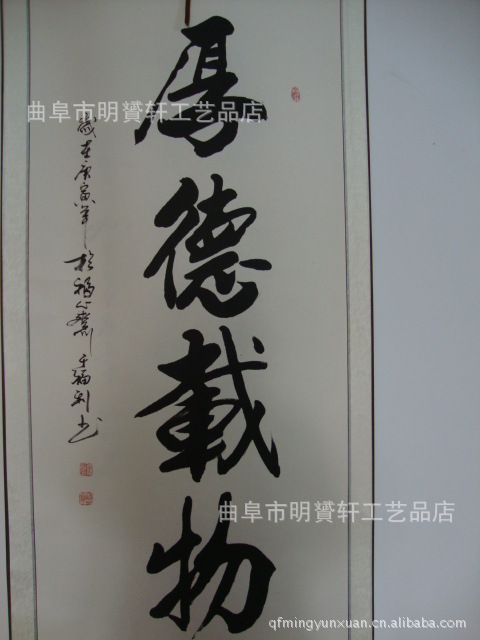 厚德載物
歲在庚寅年於福心齋王福利书
曲阜市明赟轩工艺品店
曲阜市明赟轩工艺品店
qfmingyunxuan.cn.alibaba.com